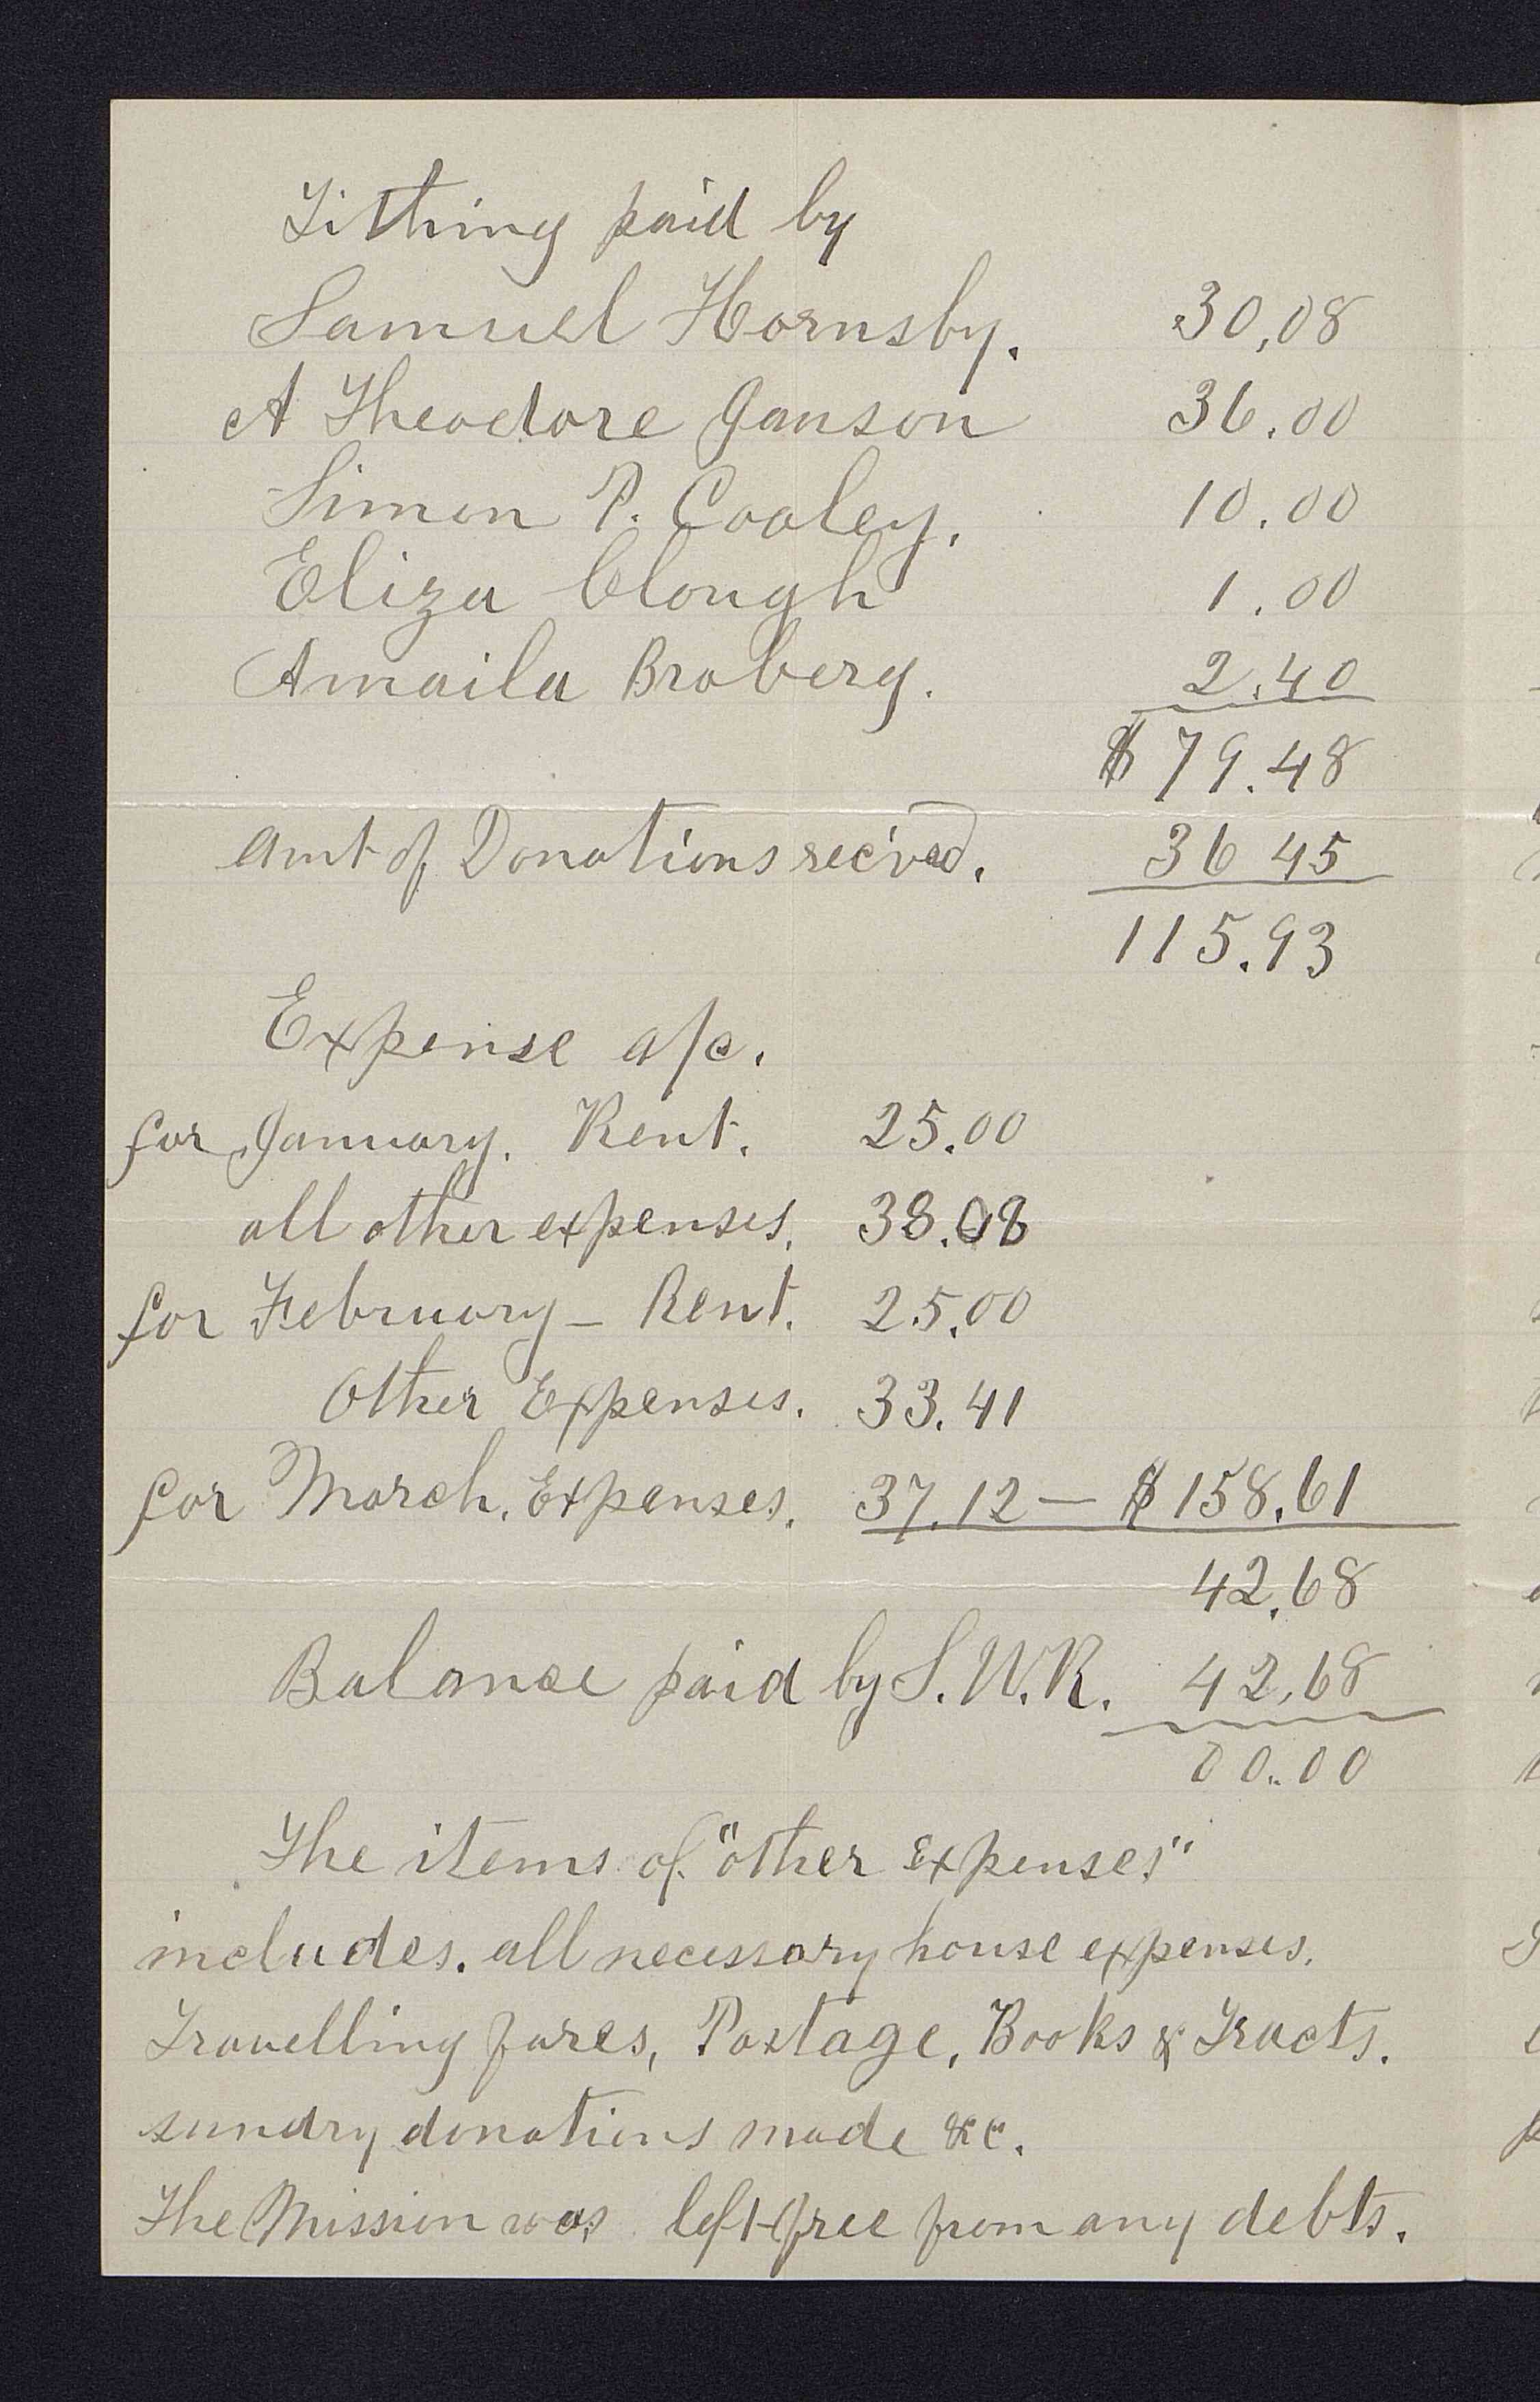 Tithing paid by
Samuel Hornsby. 30,08
A Theodore Janson 36.00
Simon P. Cooley. 10.00
Eliza Clough 1.00
Amaila Broberg. 2.40
$ 79.48
Amt of Donations rec'ved. 36 45
115.93
Expense a/c.
for January. Rent. 25.00
all other expenses. 38.08
for February - Rent. 25.00
Other Expenses. 33.41
for March. Expenses. 37.12 — $ 158.61
42.68
Balance paid by S.W.R. 42,68
00.00
The items of "other Expenses"
includes. all necessary house expenses.
Travelling fares, Postage, Books & Tracts.
sundry donations made &c.
The Mission was left free from any debts.